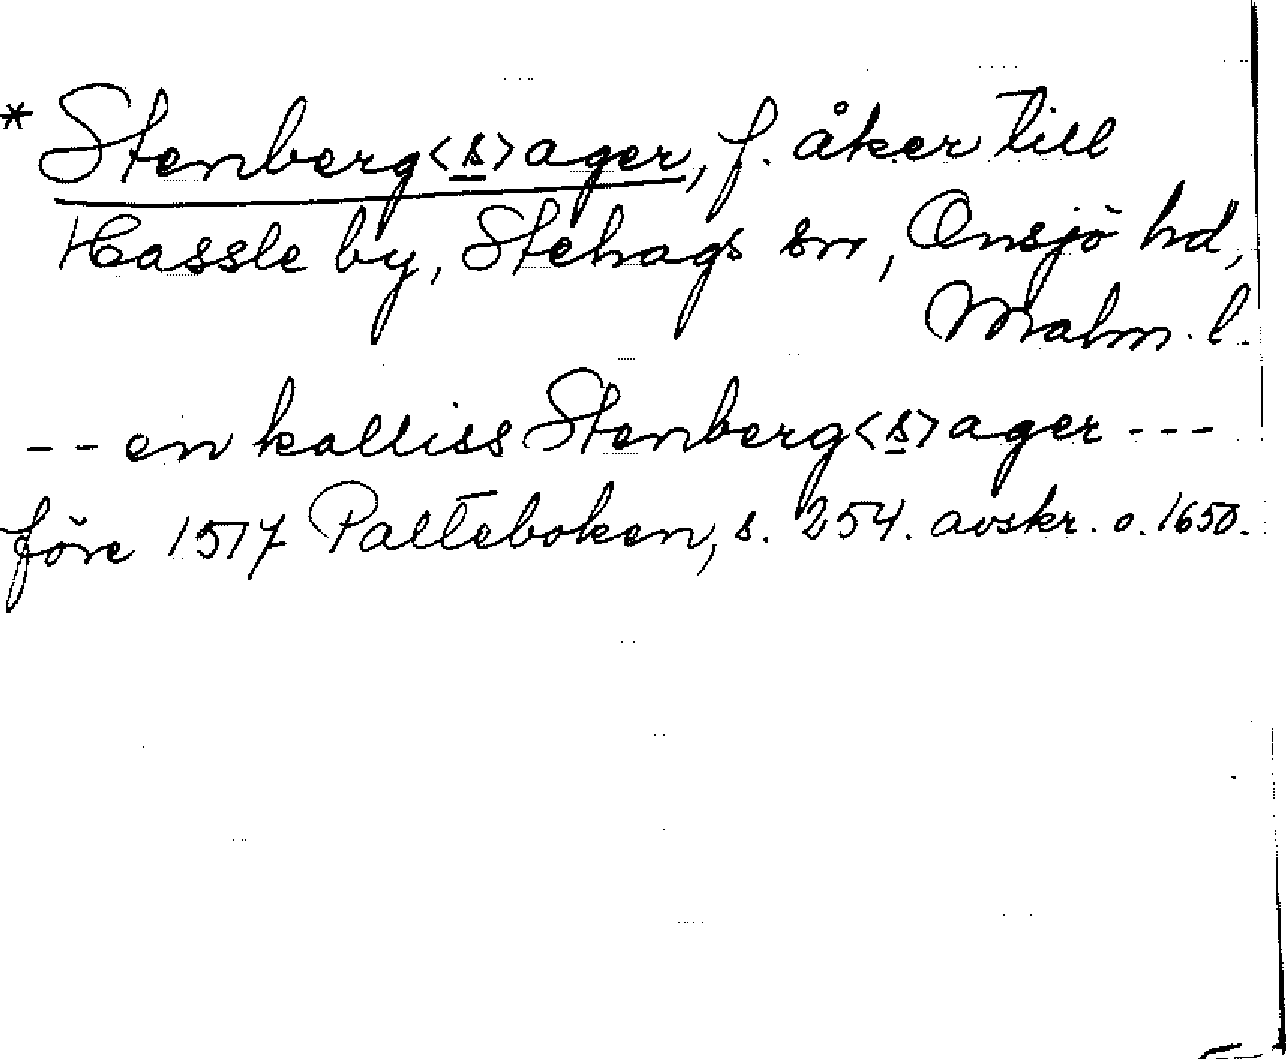 * Stenberg<s>ager, f. åker till
Hassle by, Stehags sn, Onsjö hd,
Malm. l.
-- en kalliss Stenberg<s>ager ---
före 1517 Palteboken, s. 254. avskr. o. 1650.